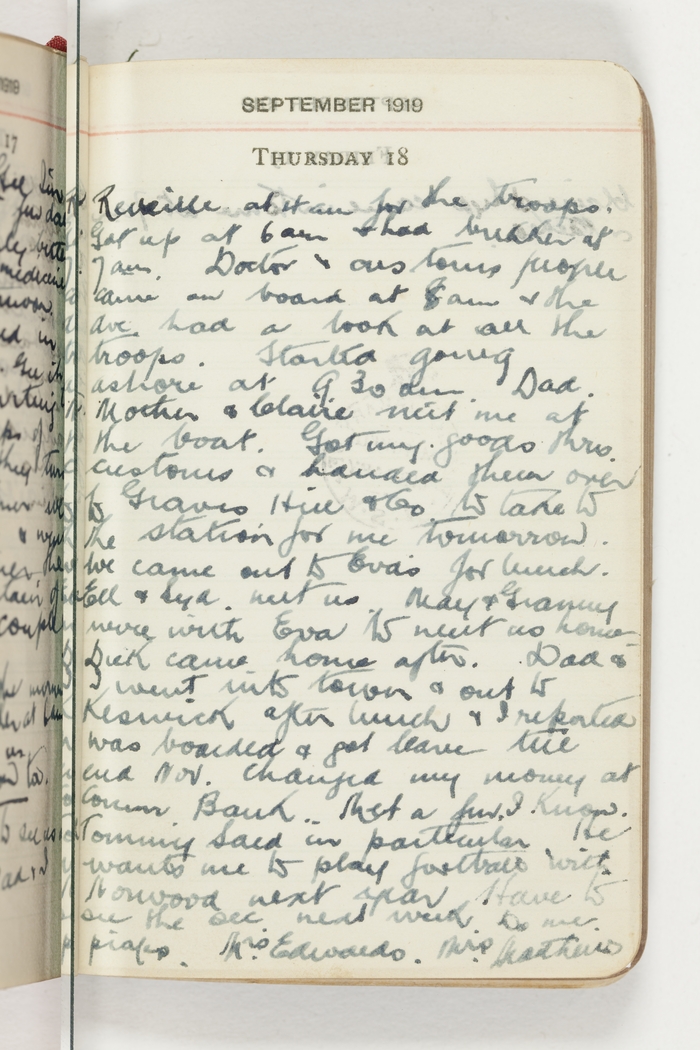 SEPTEMBER 1919
THURSDAY 18
Reveille at 4 am for the troops.
Got up at 6 am & had breakker at
7 am. Doctor & customs people
came on board at 8 am & the
doc had a look at all the
troops. Started going
ashore at 9 30 am. Dad.
Mother & Claire met me at
the boat. Got my goods thro.
customs & handed them over
to Graves Hill & Co to take to
the station for me tomorrow.
We came out to Eva's for lunch.
Ell & Syd. met us. May & Granny
were with Eva to meet us home
Dick came home after. Dad &
I went into town & out to
Keswick after lunch & I reported
was boarded & got leave till
end Nov. Changed my money at
Comm Bank. Met a few I know.
Tommy Said in particular He
wants me to play football with
Norwood next year Have to
see the sec next week
Mrs Edwards. Mrs Matthews